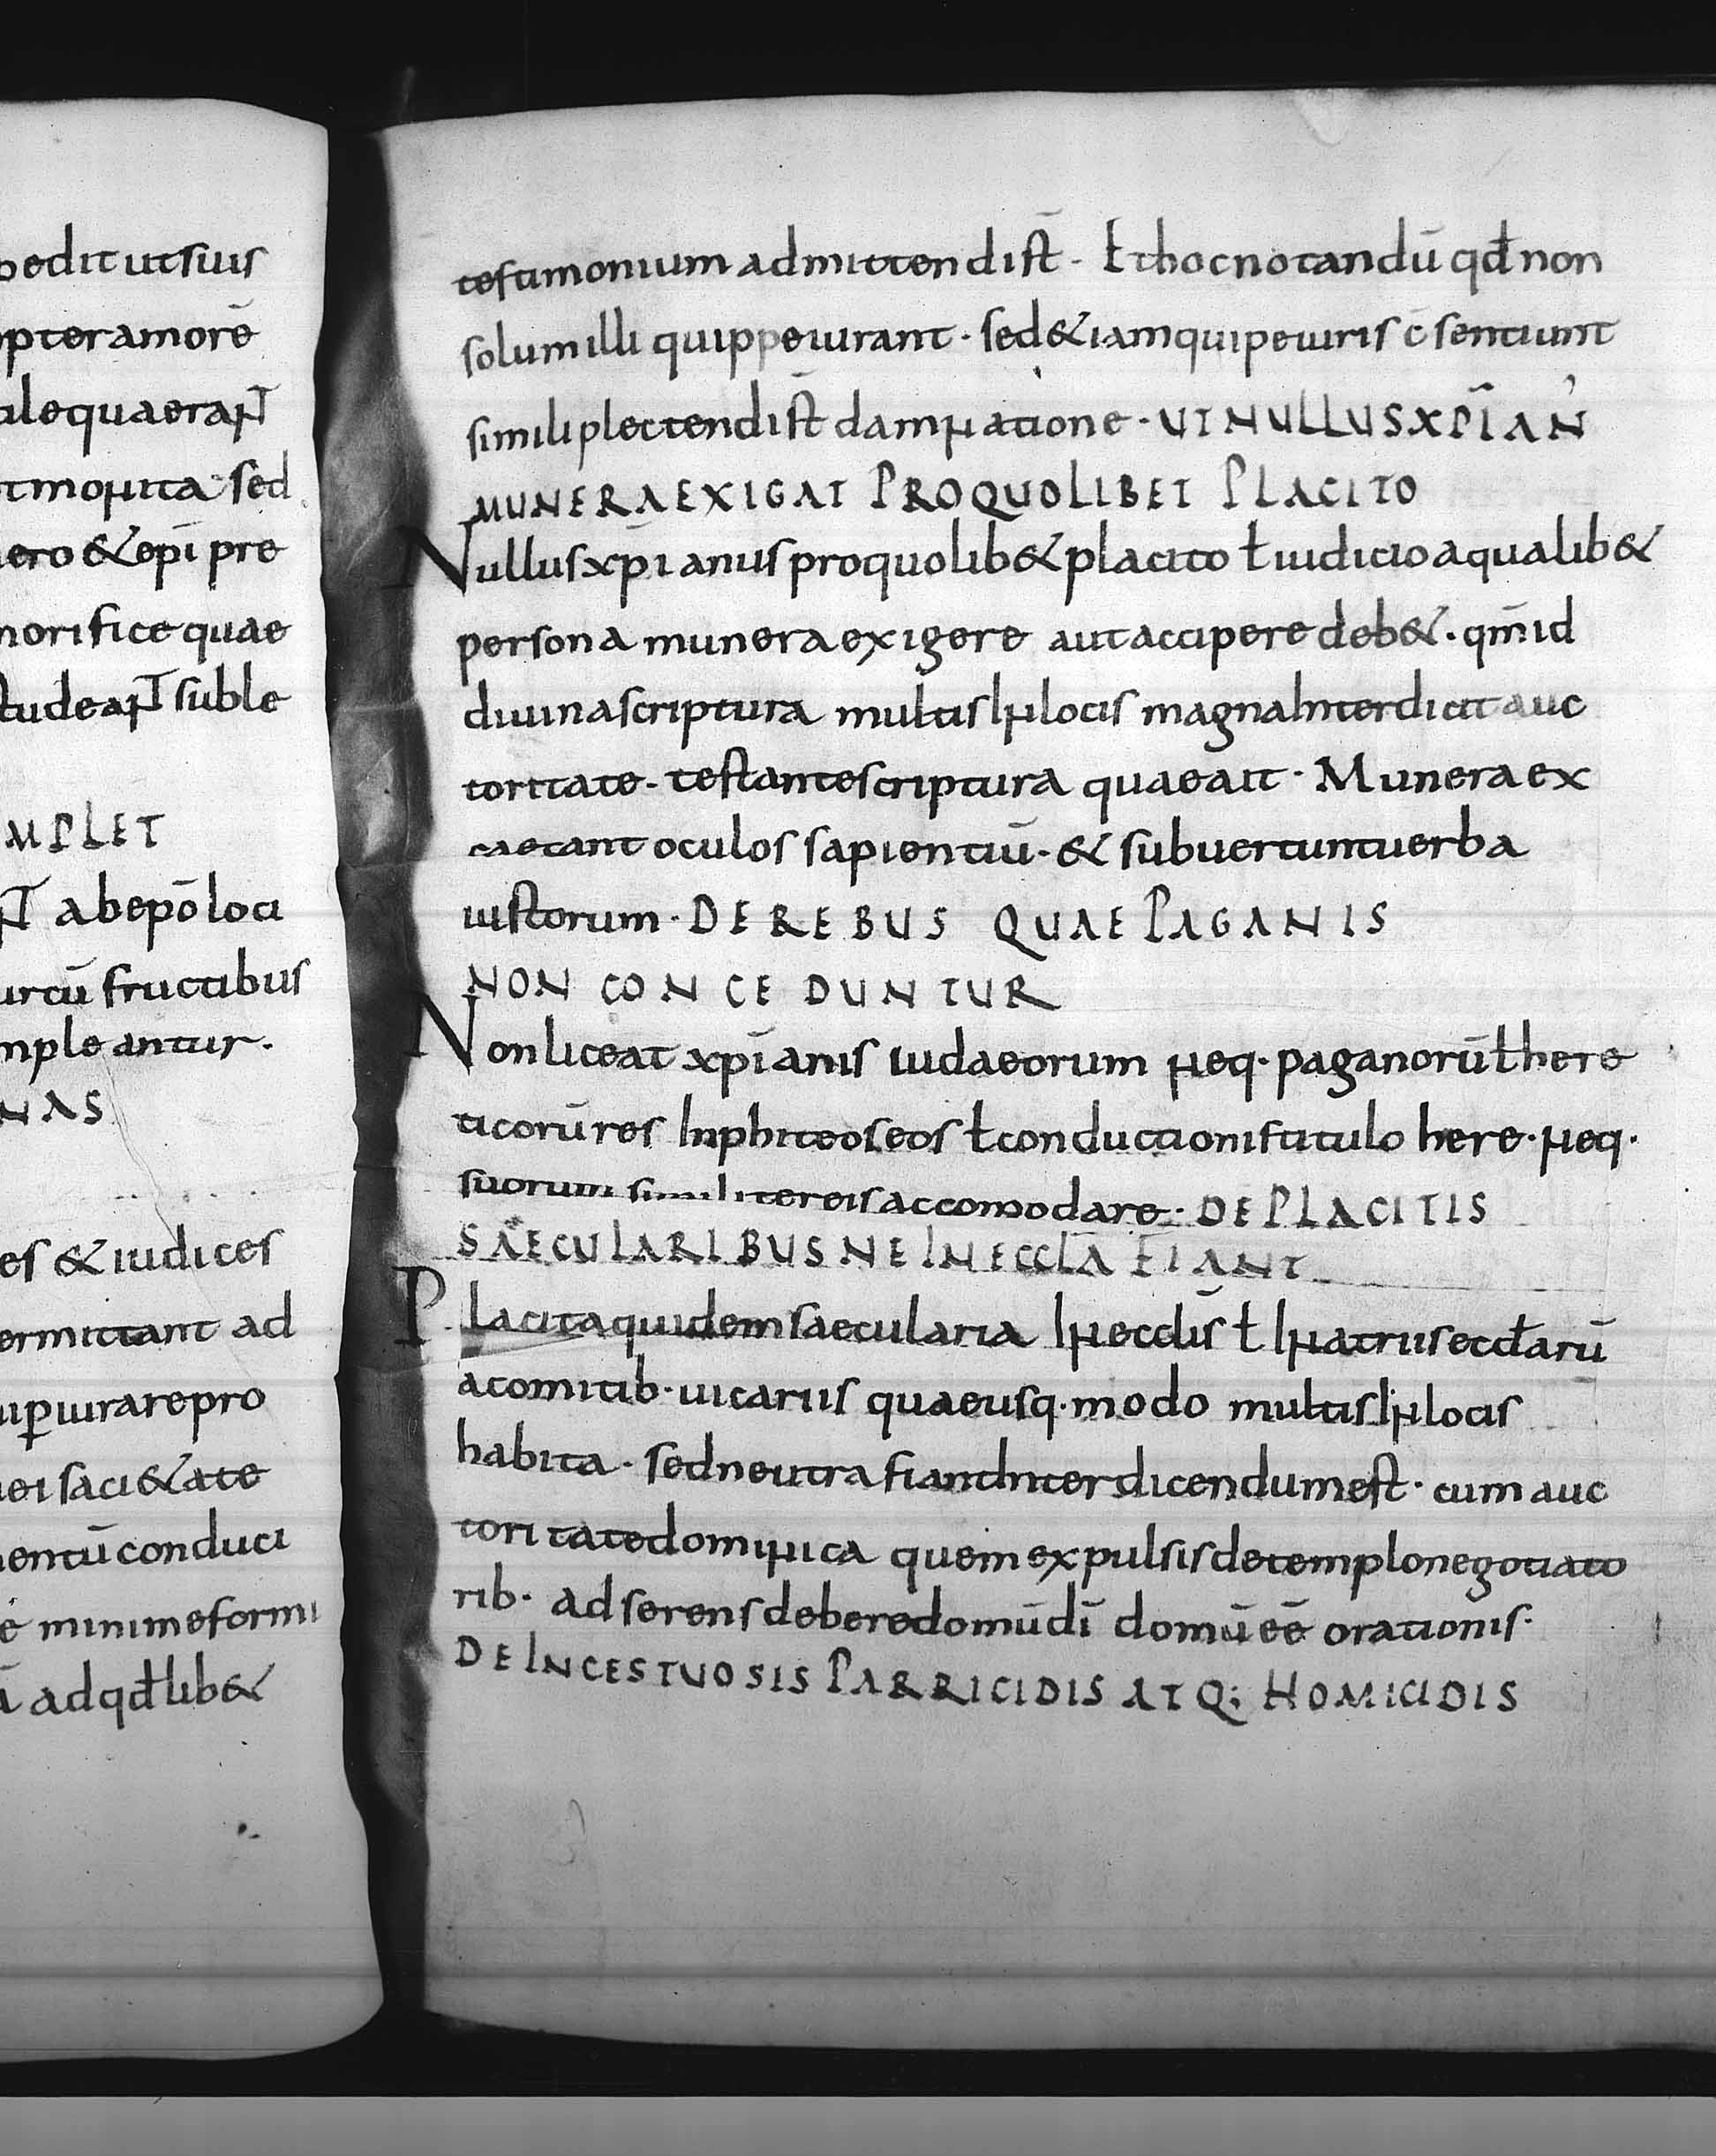 bedit ut suis
opter amorē
ale quaeraNT
t monita sed
ero & epī pre
norifice quae
studeaNT suble
MPLET
NT ab epō loci
urtū fructibus
mpleantur.
NAS
es & iudices
ermittant ad
ui ꝑiurare pro
ei saci&ate
entū conduci
ē minime formi
ā ad qđ lib&
testimonium admittendi sт̄ · Et hoc notandū qđ non
solum illi qui ppeiurant · sed & iam qui peiuris c̄sentiunt
simili plectendi sт̄ damnatione · UT NULLUS XPĪAN̓
MUNERA EXIGAT PRO QUOLIBET PLACITO
Nullus xpīanus pro quolib& placito ł iudicio a qualib&
persona munera exigere aut accipere deb&· qm̄ id
diuina scriptura multis In locis magna Interdicit auc
toritate · testante scriptura quae ait · Munera ex
caecant oculos sapientiū · & subuertunt uerba
iustorum · DE REBUS QUAE PAGANIS
NON CONCEDUNTUR
Non liceat xpīanis iudaeorum neq· paganorū ł here
ticorū res Inphiteoseos ł conductionis titulo here · neq·
suorum similiter eis accomodare · DE PLACITIS
SAECULARIBUS NE IN ECCLĀ FIANT
Placita quidem saecularia In eccłis̄ ł In atriis eccłarū
a comitib· uicariis quae usq· modo multis In locis
habita · sed ne ultra fiant Interdicendum est · cum auc
toritate dominica quem expulsis de templo negotiato
rib· adserens debere domū dī domū eē orationis·
DE INCESTUOSIS PARRICIDIS ATQ; HOMICIDIS